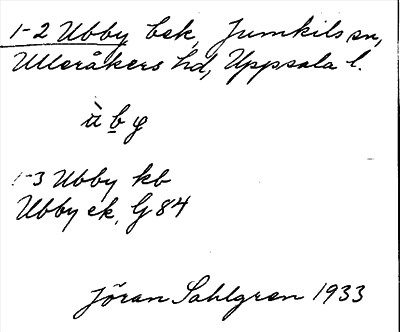 1-2 Ubby bek, Jumkils sn,
Ulleråkers hd, Uppsala l.
ù b y
1-3 Ubby kb
Ubby ek, G 84
Jöran Sahlgren 1933